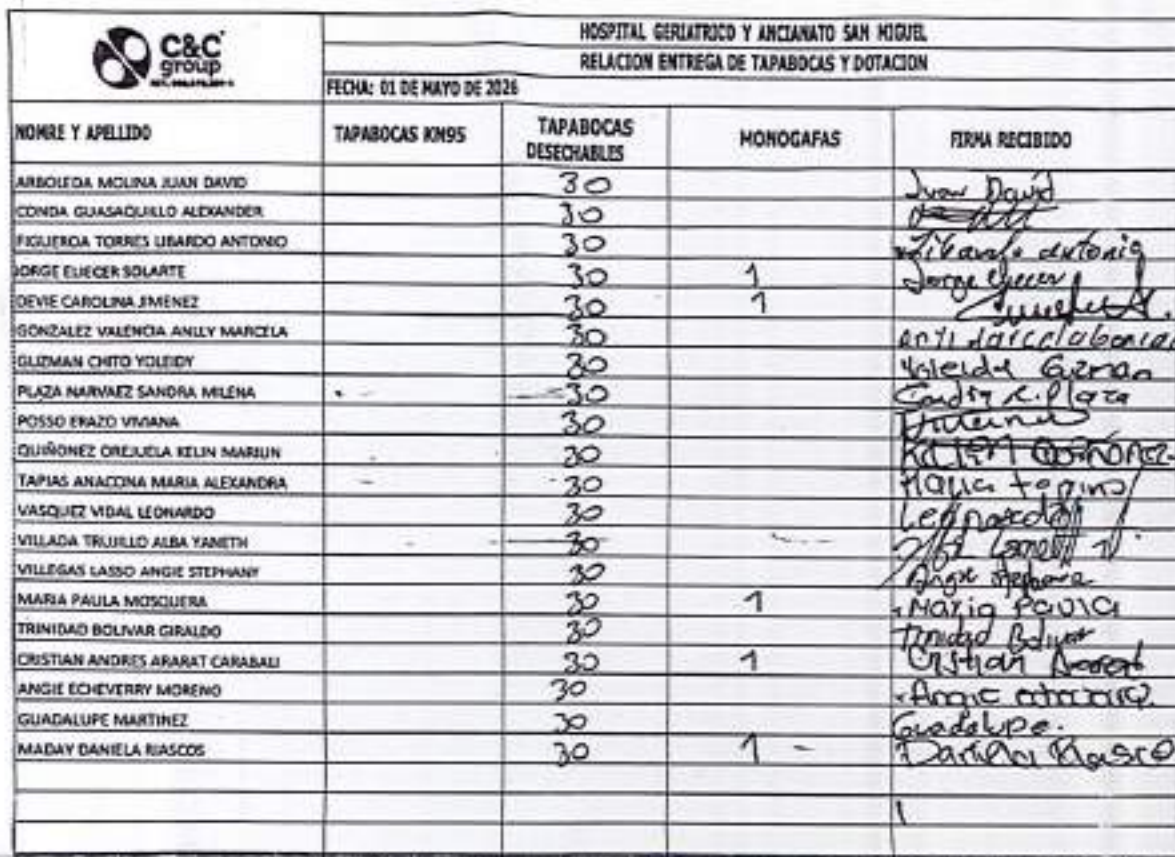 C&C
group
HOSPITAL GERIATRICO Y ANCIANATO SAN MIGUEL
RELACION ENTREGA DE TAPABOCAS Y DOTACION
FECHA: 01 DE MAYO DE 2026
NOMRE Y APELLIDO TAPABOCAS KN95 TAPABOCAS DESECHABLES MONOGAFAS FIRMA RECIBIDO
ARBOLEDA MOLINA JUAN DAVID 30 Juan David
CONDA GUASAQUILLO ALEXANDER 30
FIGUEROA TORRES LIBARDO ANTONIO 30 antonio
JORGE ELIECER SOLARTE 30 1 Jorge
DEVIE CAROLINA JIMENEZ 30 1
GONZALEZ VALENCIA ANLLY MARCELA 30
GUZMAN CHITO YOLEIDY 30
PLAZA NARVAEZ SANDRA MILENA 30 Plaza
POSSO ERAZO VIVIANA 30
QUIÑONEZ OREJUELA KELIN MARILIN 30
TAPIAS ANACONA MARIA ALEXANDRA 30 Maria
VASQUEZ VIDAL LEONARDO 30 Leonardo
VILLADA TRUJILLO ALBA YANETH 30
VILLEGAS LASSO ANGIE STEPHANY 30 Angie
MARIA PAULA MOSQUERA 30 1 Maria Paula
TRINIDAD BOLIVAR GIRALDO 30 Trinidad Bolivar
CRISTIAN ANDRES ARARAT CARABALI 30 1 Cristian Ararat
ANGIE ECHEVERRY MORENO 30 Angie
GUADALUPE MARTINEZ 30 Guadalupe.
MADAY DANIELA RIASCOS 30 1 Daniela Riasco